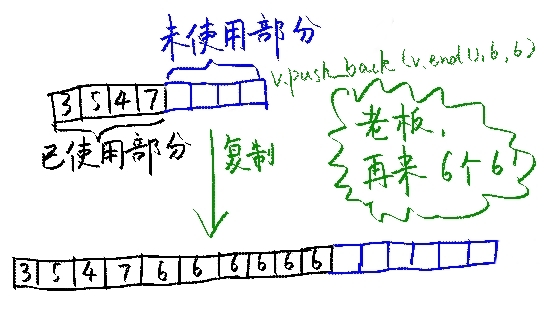 未使用部分
v.push_back(v.end(),6,6)
3 5 4 7
已使用部分
复制
老板,
再来6个6!
3 5 4 7 6 6 6 6 6 6